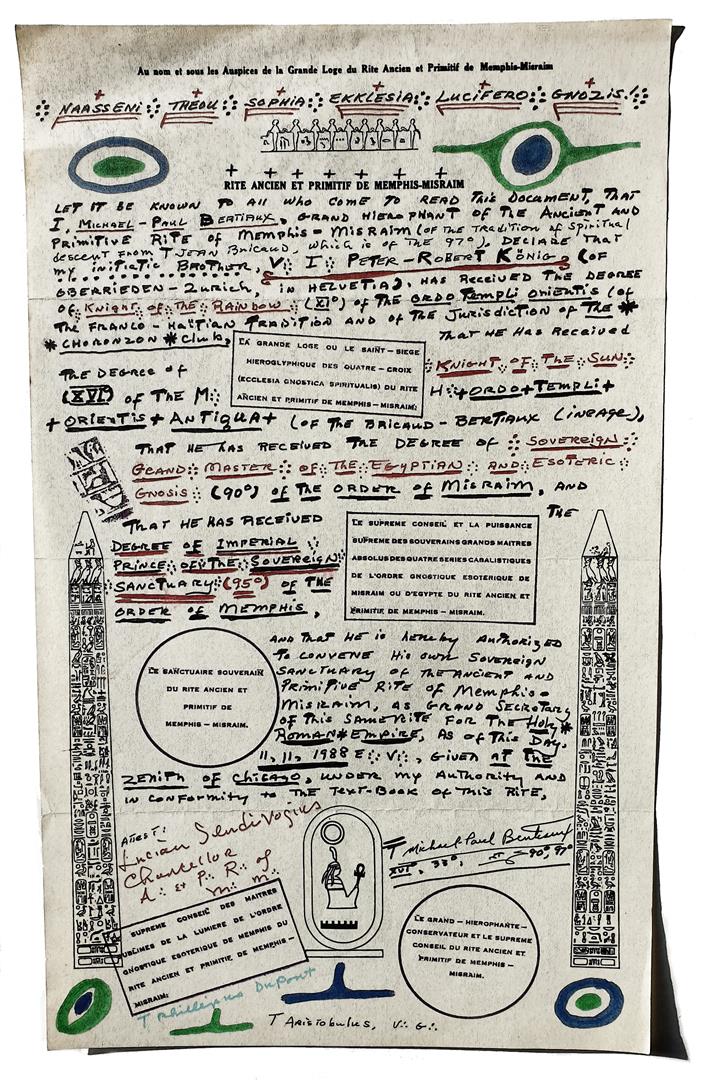 Au nom et sous les Auspices de la Grande Loge du Rite Ancien et Primitif de Memphis-Misraim
NAASSENI THEOU SOPHIA EKKLESIA LUCIFERO GNOZIS!
RITE ANCIEN ET PRIMITIF DE MEMPHIS-MISRAIM
LET IT BE KNOWN TO All WHO COME TO READ THIS DOCUMENT, THAT
I, MICHAEL-PAUL BERTIAUX, GRAND HIEROPHANT OF THE ANCIENT AND
PRIMITIVE RITE OF MEMPHIS-MISRAIM (OF THE TRADITION OF SPIRITUAL
DESCENT FROM T JEAN BRICAUD, WHICH IS OF THE 97°), DECLARE THAT
MY INITIATIC BROTHER, V∴ I∴ PETER-ROBERT KÖNIG, (OF
OBERRIEDEN-ZURICH, IN HELVETIA), HAS RECEIVED THE DEGREE
OF KNIGHT OF THE RAINBOW (XI°) OF THE ORDO TEMPLI ORIENTIS (OF
THE FRANCO-HAÏTIAN TRADITION AND OF THE JURISDICTION OF THE *
* CHORONZON * Club, THAT HE HAS RECEIVED
LA GRANDE LOGE OU LE SAINT – SIEGE
HIEROGLYPHIQUE DES QUATRE – CROIX
(ECCLESIA GNOSTICA SPIRITUALIS) DU RITE
ANCIEN ET PRIMITIF DE MEMPHIS – MISRAIM:
THE DEGREE OF KNIGHT OF THE SUN
(XVI) OF THE M∴ H∴ + ORDO + TEMPLI +
+ ORIENTIS + ANTIQUA + (OF THE BRICAUD - BERTIAUX LINEAGE),
THAT HE HAS RECEIVED THE DEGREE OF SOVEREIGN
GRAND MASTER OF THE EGYPTIAN AND ESOTERIC
GNOSIS (90°) OF THE ORDER OF MISRAIM, AND
THAT HE HAS RECEIVED THE
DEGREE OF IMPERIAL
PRINCE OF THE SOVEREIGN
SANCTUARY (95°) OF THE
ORDER OF MEMPHIS,
LE SUPREME CONSEIL ET LA PUISSANCE
SUPREME DES SOUVERAINS GRANDS MAITRES
ABSOLUS DES QUATRE SERIES CABALISTIQUES
DE L'ORDRE GNOSTIQUE ESOTERIQUE DE
MISRAIM OU D'EGYPTE DU RITE ANCIEN ET
PRIMITIF DE MEMPHIS – MISRAIM.
LE SANCTUAIRE SOUVERAIN
DU RITE ANCIEN ET
PRIMITIF DE
MEMPHIS – MISRAIM.
AND THAT HE IS HEREBY AUTHORIZED
TO CONVENE HIS OWN SOVEREIGN
SANCTUARY OF THE ANCIENT AND
PRIMITIVE RITE OF MEMPHIS-
MISRAIM, AS GRAND SECRETARY
OF THIS SAME RITE FOR THE HOLY *
ROMAN * EMPIRE, AS OF THIS DAY,
11, 11, 1988 E∴ V∴, GIVEN AT THE
ZENITH OF CHICAGO, UNDER MY AUTHORITY AND
IN CONFORMITY TO THE TEXT-BOOK OF THIS RITE,
ATTEST:
Lucian Sendivogius
Chancellor
A∴ et P∴ R∴ of
M∴ M∴
T Michael Paul Bertiaux
XVI°, 33°, 90°, 97°
SUPREME CONSEIL DES MAITRES
SUBLIMES DE LA LUMIERE DE L'ORDRE
GNOSTIQUE ESOTERIQUE DE MEMPHIS DU
RITE ANCIEN ET PRIMITIF DE MEMPHIS –
MISRAIM:
LE GRAND – HIEROPHANTE –
CONSERVATEUR ET LE SUPREME
CONSEIL DU RITE ANCIEN ET
PRIMITIF DE MEMPHIS –
MISRAIM.
T Phillippus Dupont
T ARISTOBULUS, V∴ G∴